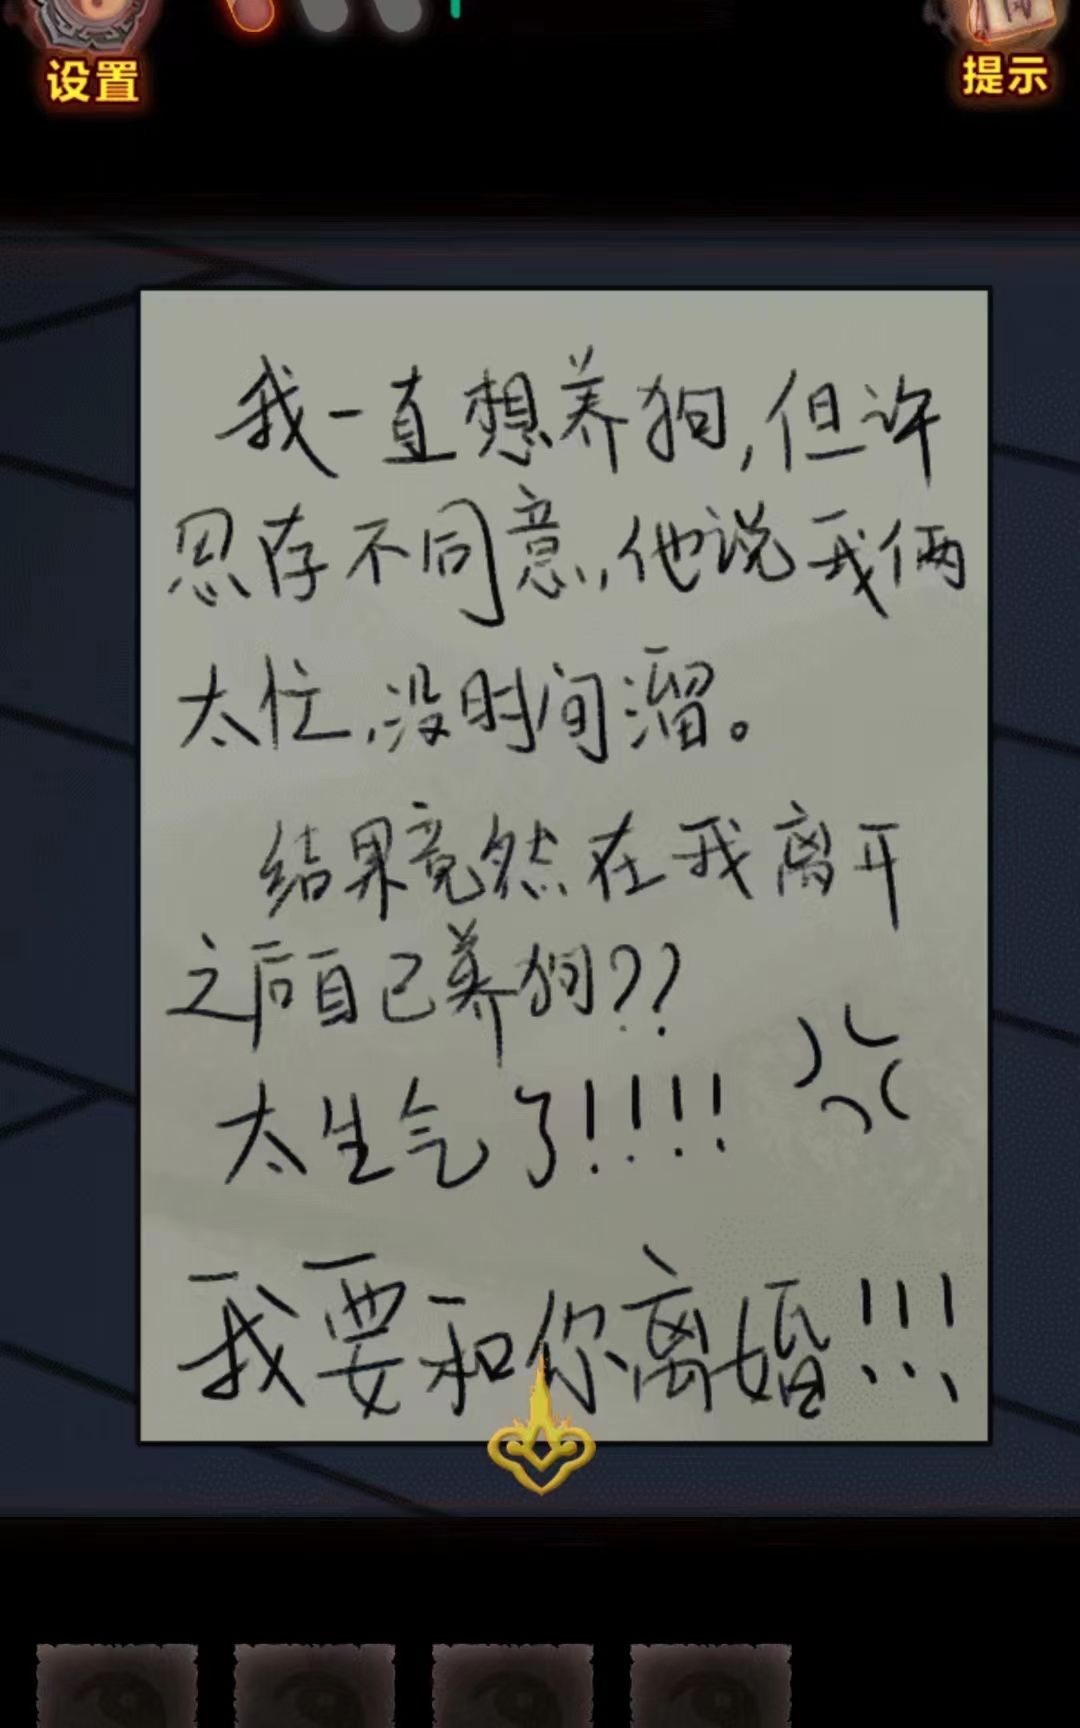 设置
提示
我一直想养狗,但许
忍存不同意,他说我俩
太忙,没时间溜。
结果竟然在我离开
之后自己养狗??
太生气了!!!!
我要和你离婚!!!